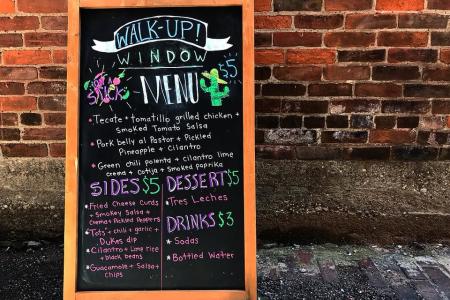 WALK-UP!
WINDOW
MENU
$5
* Tecate + tomatillo grilled chicken +
Smoked Tomato Salsa
* Pork belly al Pastor + Pickled
Pineapple + Cilantro
* Green chili polenta + cilantro lime
crema + Cotija + Smoked paprika
SIDES $5
* Fried Cheese Curds
+ Smokey Salsa +
Crema + Pickled Peppers
* "Tots" + chili + garlic +
Dukes dip
* Cilantro + Lime rice
+ black beans
* Guacamole + Salsa +
Chips
DESSERT $5
* Tres Leches
DRINKS $3
* Sodas
* Bottled Water